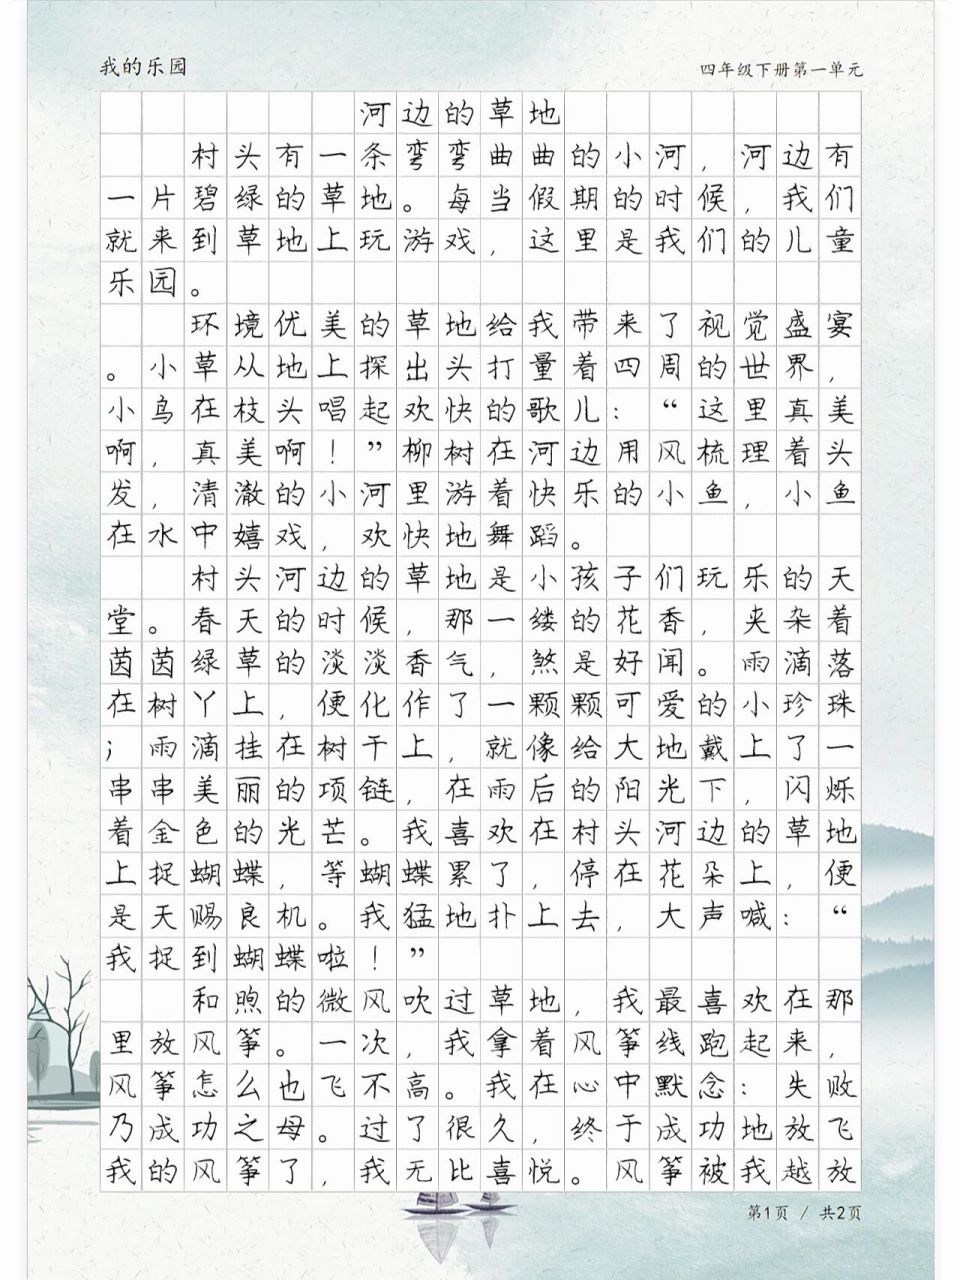 我的乐园
四年级下册第一单元
河边的草地
村头有一条弯弯曲曲的小河，河边有
一片碧绿的草地。每当假期的时候，我们
就来到草地上玩游戏，这里是我们的儿童
乐园。
环境优美的草地给我带来了视觉盛宴
。小草从地上探出头打量着四周的世界，
小鸟在枝头唱起欢快的歌儿：“这里真美
啊，真美啊！”柳树在河边用风梳理着头
发，清澈的小河里游着快乐的小鱼，小鱼
在水中嬉戏，欢快地舞蹈。
村头河边的草地是小孩子们玩乐的天
堂。春天的时候，那一缕的花香，夹杂着
茵茵绿草的淡淡香气，煞是好闻。雨滴落
在树丫上，便化作了一颗颗可爱的小珍珠
；雨滴挂在树干上，就像给大地戴上了一
串串美丽的项链，在雨后的阳光下，闪烁
着金色的光芒。我喜欢在村头河边的草地
上捉蝴蝶，等蝴蝶累了，停在花朵上，便
是天赐良机。我猛地扑上去，大声喊：“
我捉到蝴蝶啦！”
和煦的微风吹过草地，我最喜欢在那
里放风筝。一次，我拿着风筝线跑起来，
风筝怎么也飞不高。我在心中默念：失败
乃成功之母。过了很久，终于成功地放飞
我的风筝了，我无比喜悦。风筝被我越放
第1页 / 共2页